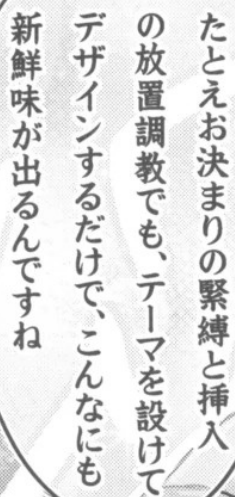 たとえお決まりの緊縛と挿入
の放置調教でも、テーマを設けて
デザインするだけで、こんなにも
新鮮味が出るんですね